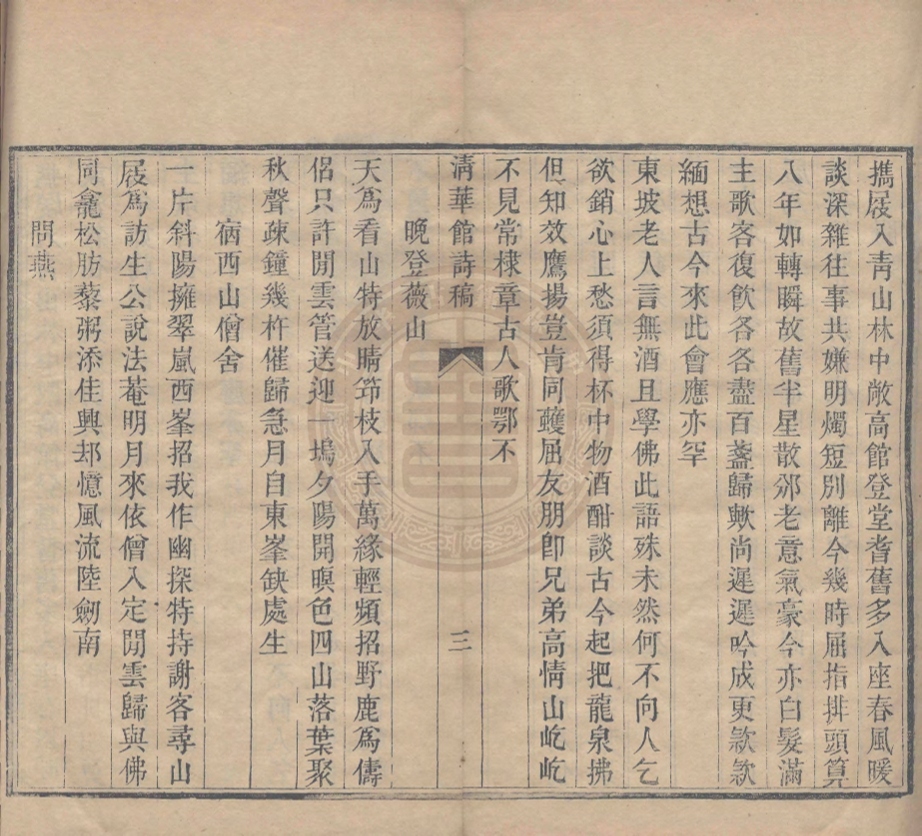 擕屐入靑山林中敞高館登堂耆舊多入座春風暖
談深雜往事共嫌明燭短別離今幾時屈指排頭算
八年如轉瞬故舊半星散邠老意氣豪今亦白髮滿
主歌客復飲各各盡百盞歸歟尚遲遲吟成更欵欵
緬想古今來此會應亦罕
東坡老人言無酒且學佛此語殊未然何不向人乞
欲銷心上愁須得杯中物酒酣談古今起把龍泉拂
但知效鷹揚豈肯同蠖屈友朋卽兄弟高情山屹屹
不見常棣章古人歌鄂不
淸華館詩稿 三
晚登薇山
天爲看山特放晴笻枝入手萬緣輕頻招野鹿爲儔
侶只許閒雲管送迎一塢夕陽開暝色四山落葉聚
秋聲疎鐘幾杵催歸急月自東峯缺處生
宿西山僧舍
一片斜陽擁翠嵐西峯招我作幽探特持謝客尋山
屐爲訪生公說法菴明月來依僧入定閒雲歸與佛
同龕松肪藜粥添佳興却憶風流陸劒南
問燕